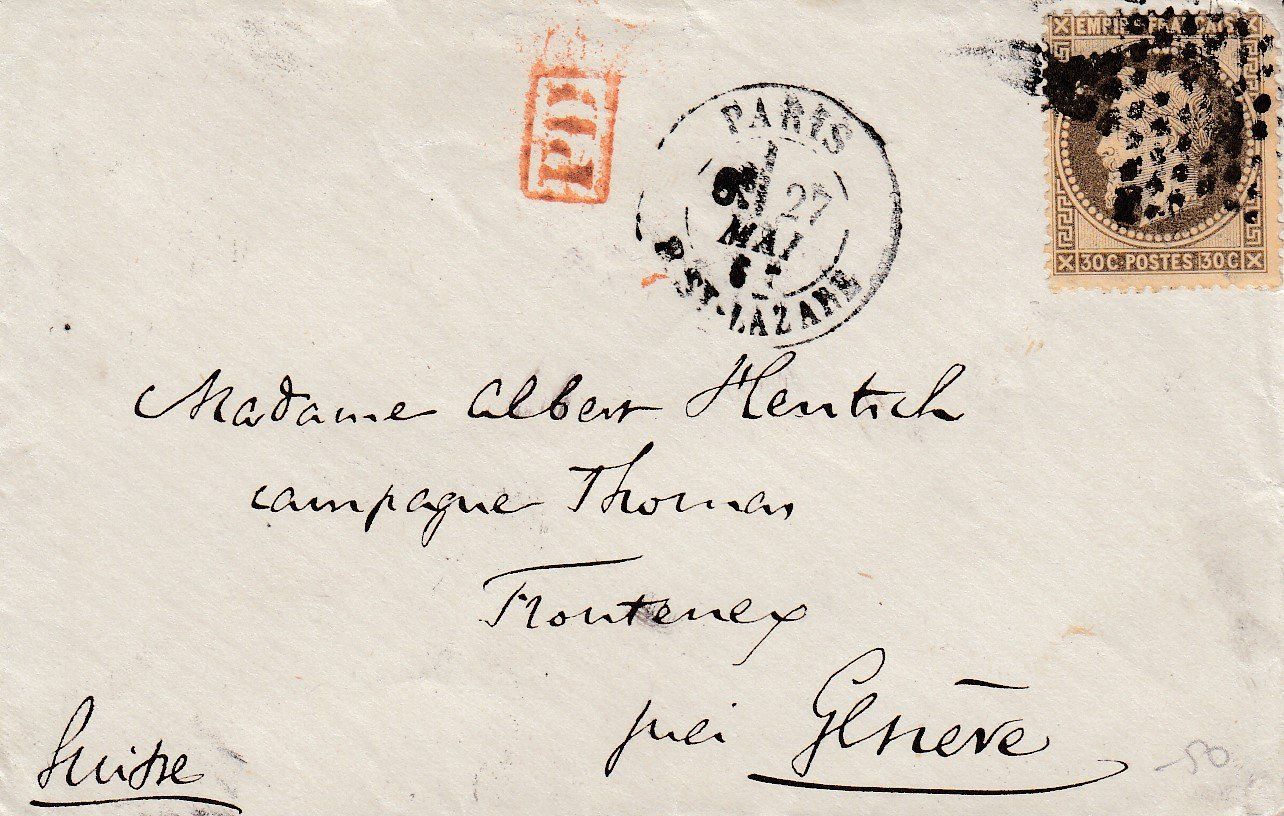 EMPIRE FRANÇAIS
30C POSTES 30C
PD
PARIS
27
MAI
ST-LAZARE
Madame Albert Hentsch
campagne Thomas
Frontenex
près Genève
Suisse
50